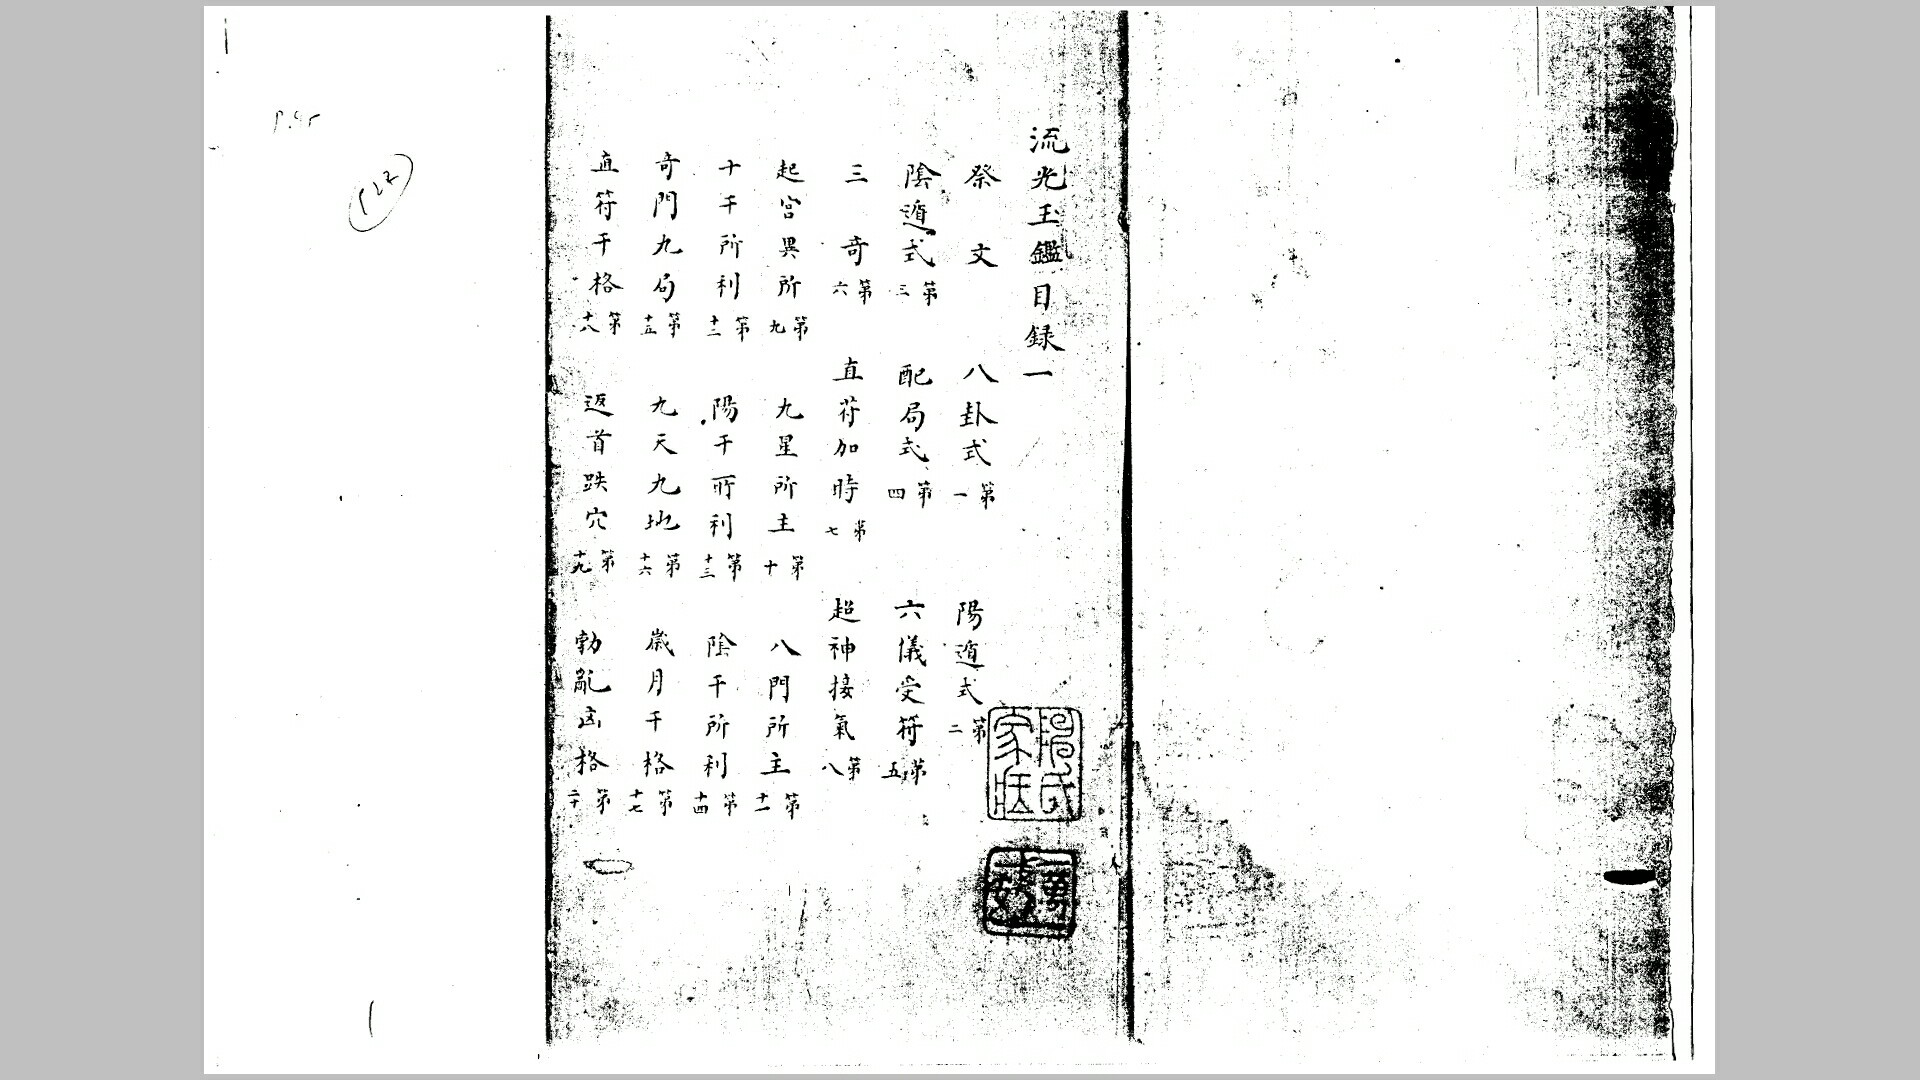 流光玉鑑目録一
祭文 八卦式第一 陽遁式第二
陰遁式第三 配局式第四 六儀受符第五
三竒第六 直苻加時第七 超神接氣第八
起宮異所第九 九星所主第十 八門所主第十一
十干所利第十二 陽干所利第十三 陰干所利第十四
竒門九局第十五 九天九地第十六 歲月干格第十七
直符干格第十八 返首跌穴第十九 勃亂凶格第二十